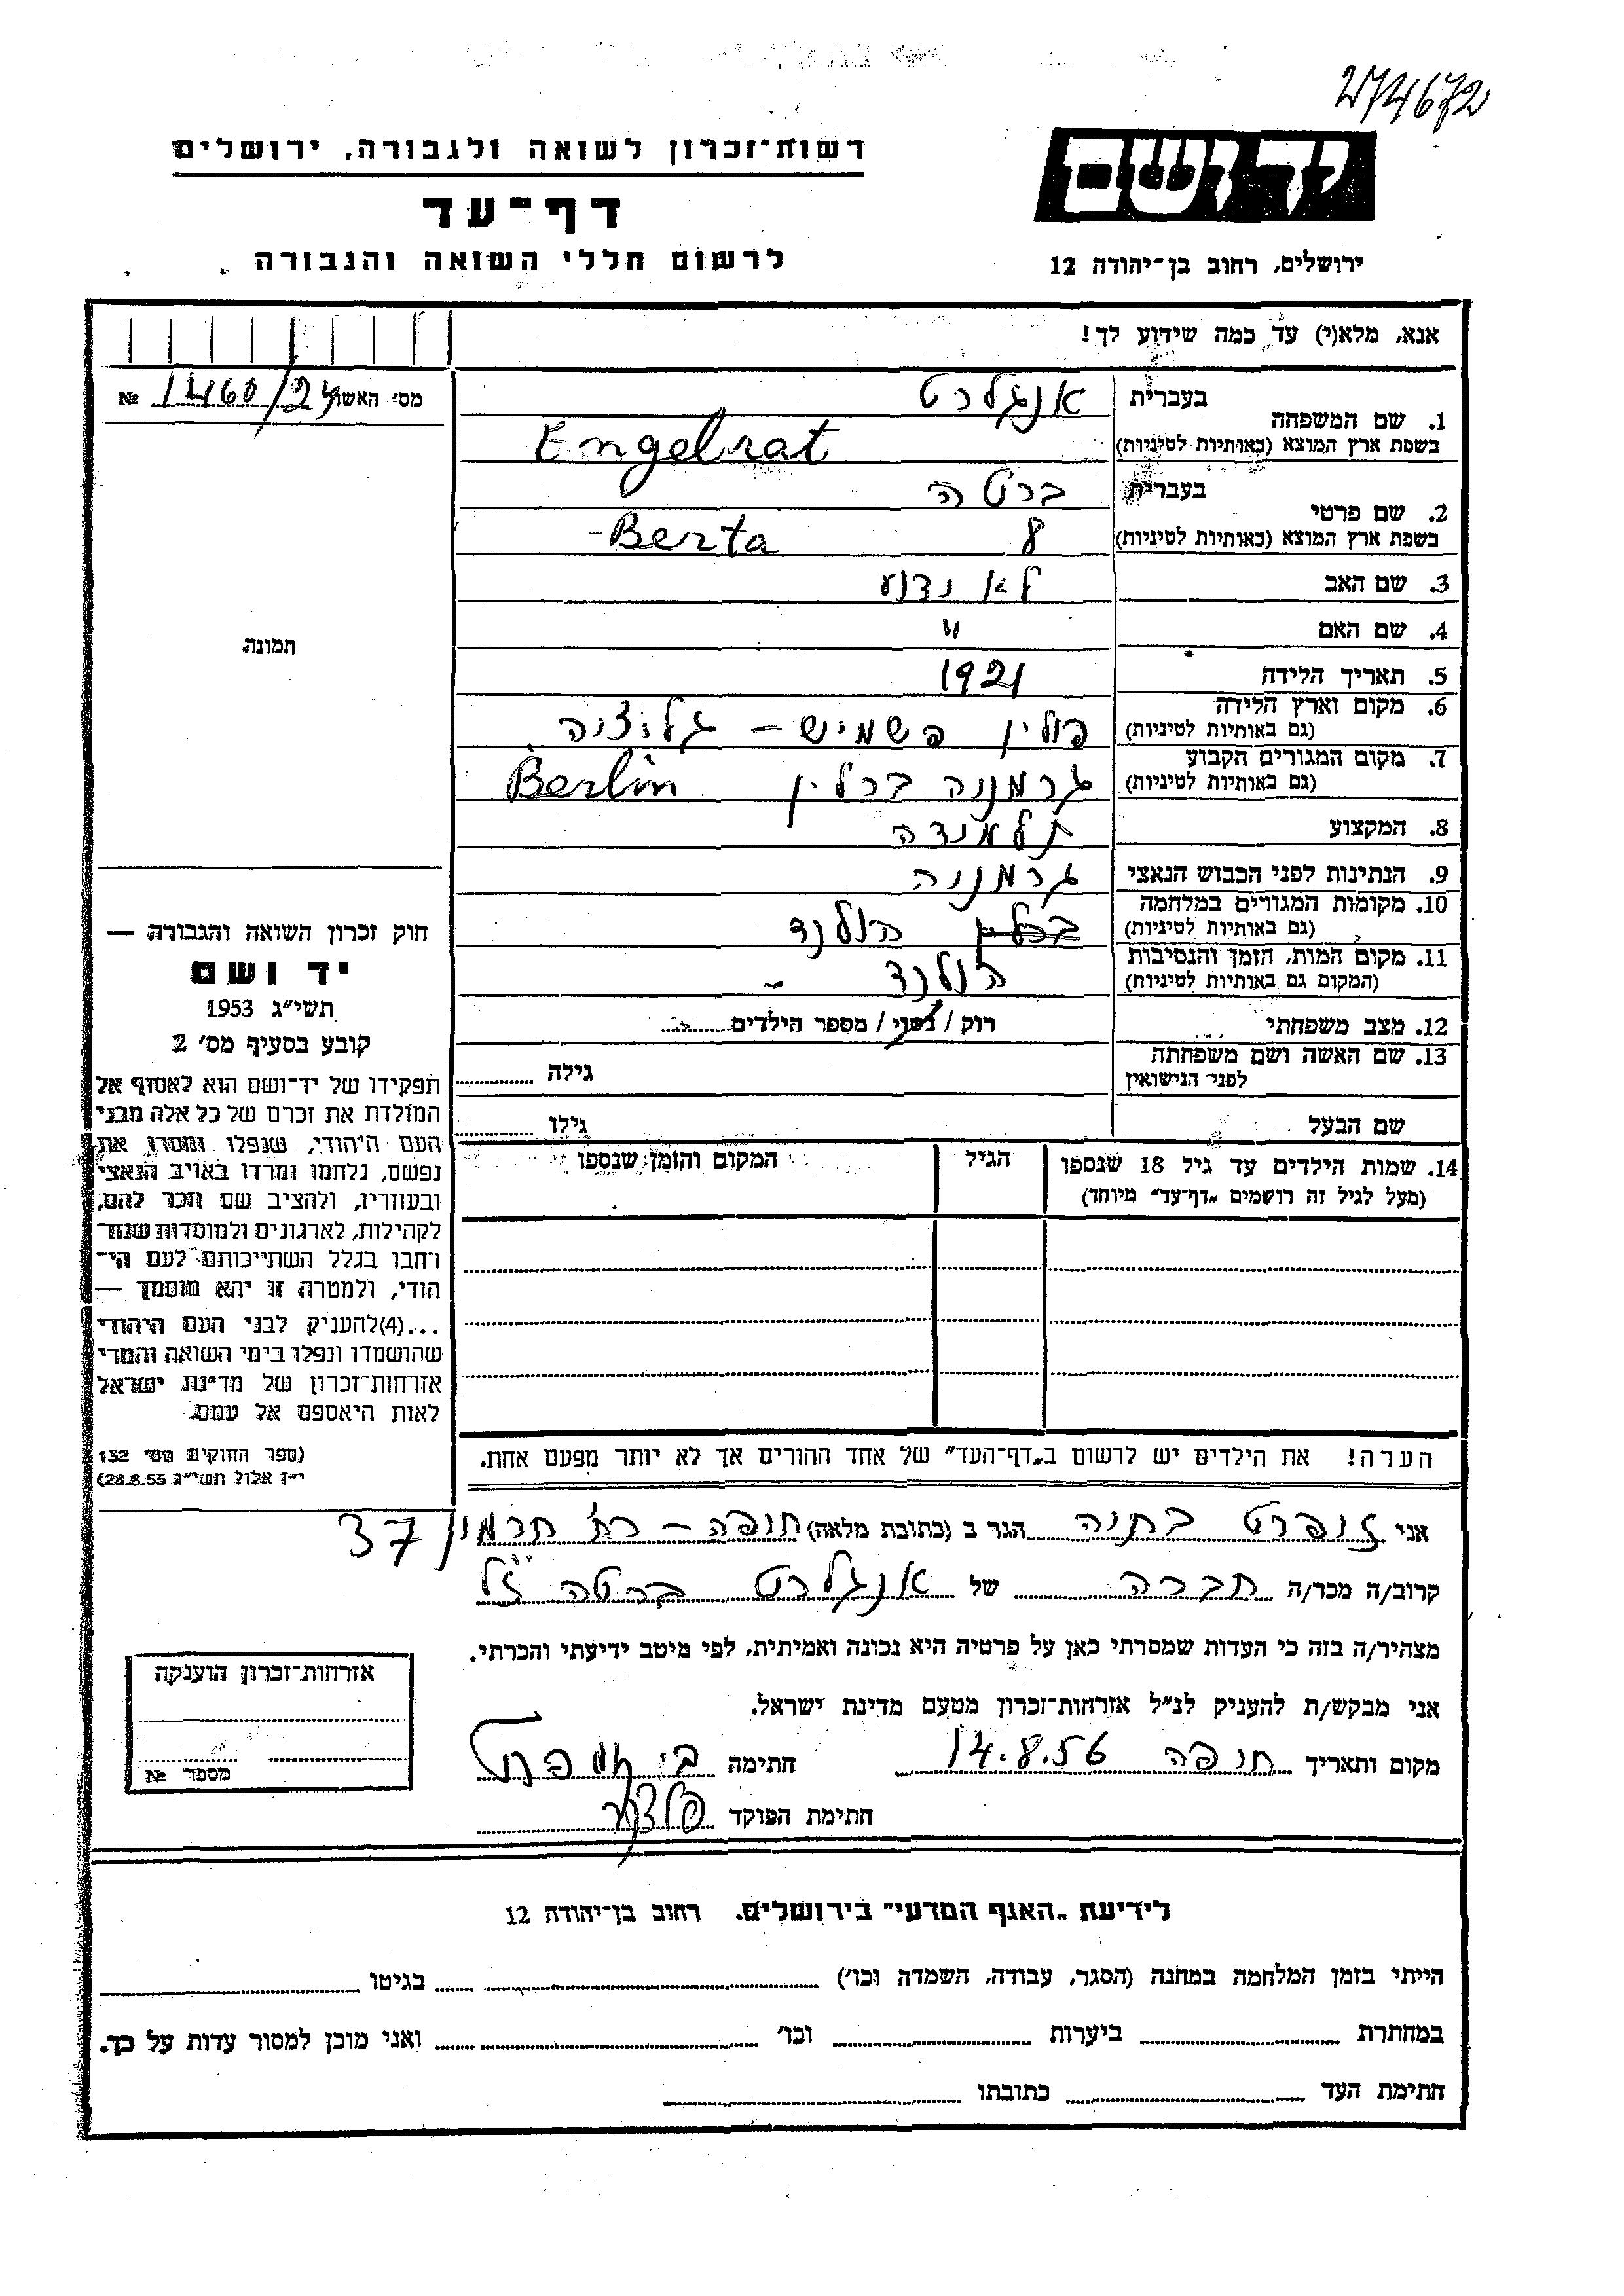 274672
יד ושם
רשות־זכרון לשואה ולגבורה, ירושלים
דף־עד
לרשום חללי השואה והגבורה
ירושלים, רחוב בן־יהודה 12
אנא, מלא(י) עד כמה שידוע לך!
מס׳ האשה № 1460/24
1. שם המשפחה בעברית אנגלרט
בשפת ארץ המוצא (באותיות לטיניות) Engelrat
2. שם פרטי בעברית ברטה
בשפת ארץ המוצא (באותיות לטיניות) 8 Berta
3. שם האב לא נדוע
4. שם האם "
5. תאריך הלידה 1921
6. מקום וארץ הלידה
(גם באותיות לטיניות) פולין פשמיש – גליציה
7. מקום המגורים הקבוע
(גם באותיות לטיניות) גרמניה ברלין Berlin
8. המקצוע תלמידה
9. הנתינות לפני הכבוש הנאצי גרמניה
10. מקומות המגורים במלחמה
(גם באותיות לטיניות) הולנד
11. מקום המות, הזמן והנסיבות
(המקום גם באותיות לטיניות) הולנד –
12. מצב משפחתי רוק / נשוי / מספר הילדים
13. שם האשה ושם משפחתה
לפני הנישואין גילה
שם הבעל גילו
14. שמות הילדים עד גיל 18 שנספו הגיל המקום והזמן שנספו
(מעל לגיל זה רושמים „דף־עד" מיוחד)
הערה! את הילדים יש לרשום ב„דף־העד" של אחד ההורים אך לא יותר מפעם אחת.
תמונה
חוק זכרון השואה והגבורה —
יד ושם
תשי״ג 1953
קובע בסעיף מס׳ 2
תפקידו של יד־ושם הוא לאסוף אל
המולדת את זכרם של כל אלה מבני
העם היהודי, שנפלו ומסרו את
נפשם, נלחמו ומרדו באויב הנאצי
ובעוזריו, ולהציב שם וזכר להם,
לקהילות, לארגונים ולמוסדות שנח־
רחבו בגלל השתייכותם לעם הי־
הודי, ולמטרה זו יהא מוסמך —
...(4)להעניק לבני העם היהודי
שהושמדו ונפלו בימי השואה והמרי
אזרחות־זכרון של מדינת ישראל
לאות היאספם אל עמם.
(ספר החוקים מס׳ 132
י״ז אלול תשי״ג 28.8.53)
אני בתיה הגר ב (כתובת מלאה) חיפה – רח׳ חרמון 37
קרוב/ה מכר/ה חברה של אנגלרט ברטה ז"ל
מצהיר/ה בזה כי העדות שמסרתי כאן על פרטיה היא נכונה ואמיתית, לפי מיטב ידיעתי והכרתי.
אני מבקש/ת להעניק לנ״ל אזרחות־זכרון מטעם מדינת ישראל.
מקום ותאריך חיפה 14.8.56 חתימה
חתימת הפוקד
אזרחות־זכרון הוענקה
מספר №
לידיעת „האגף המדעי" בירושלים. רחוב בן־יהודה 12
הייתי בזמן המלחמה במחנה (הסגר, עבודה, השמדה וכו׳) בגיטו
במחתרת ביערות וכו׳ ואני מוכן למסור עדות על כך.
חתימת העד כתובתו